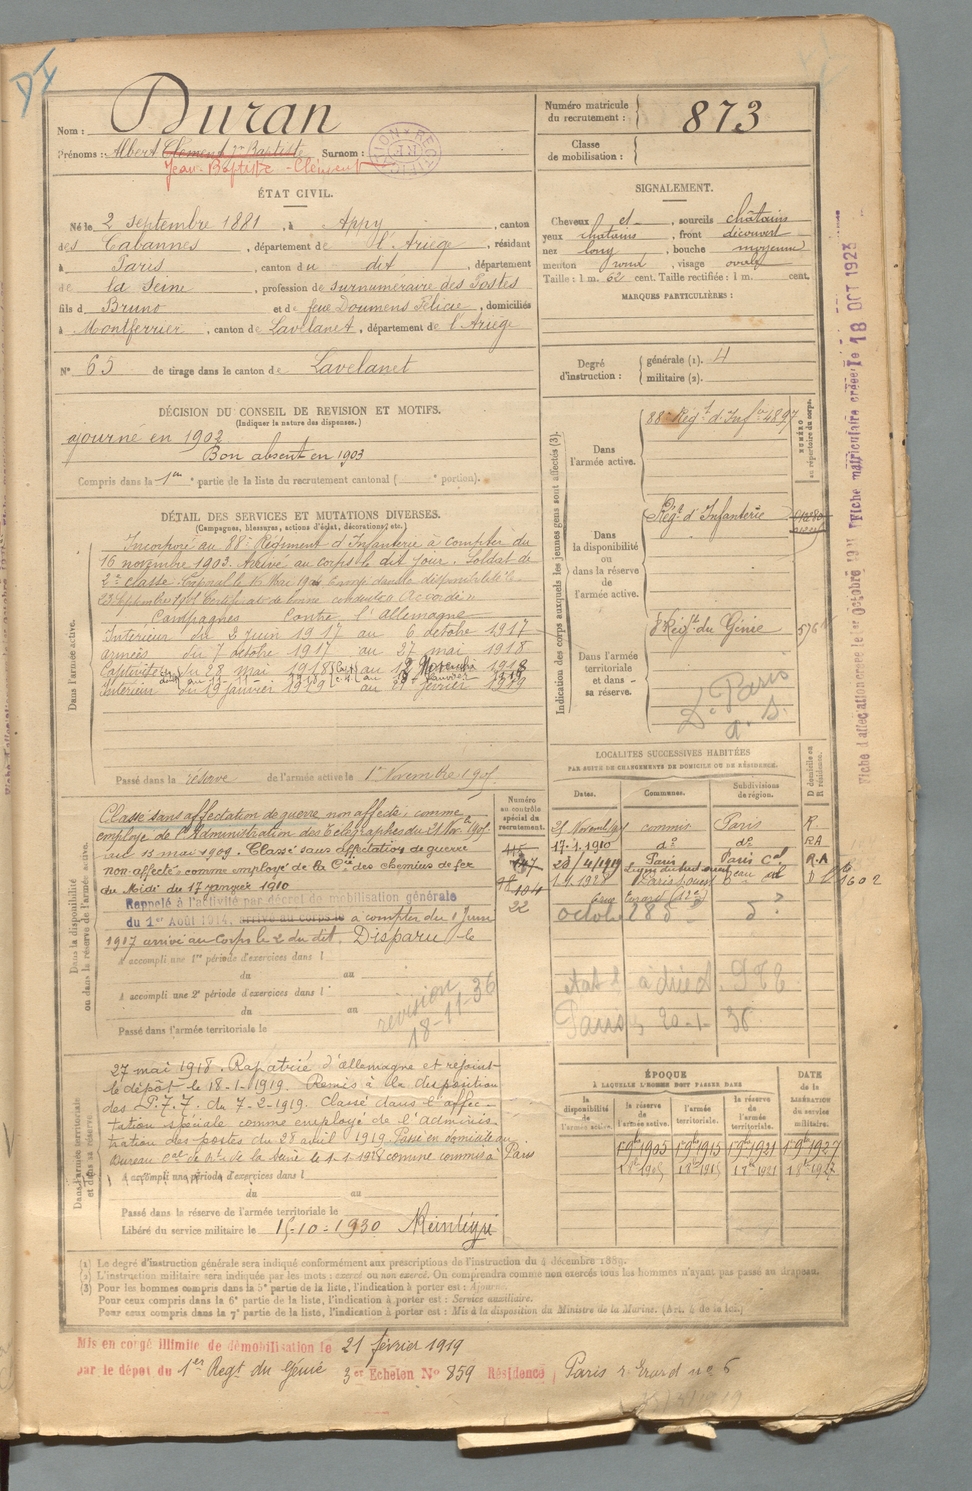 DI
Nom : Duran
Prénoms : Albert Clément Jn Baptiste Surnom :
Jean-Baptiste-Clément
ÉTAT CIVIL.
Né le 2 septembre 1881, à Appy, canton
des Cabannes, département de l'Ariège, résidant
à Paris, canton du dit, département
de la Seine, profession de surnuméraire des Postes
fils d Bruno et de feue Doumens Félicie, domiciliés
à Montferrier, canton de Lavelanet, département de l'Ariège
N° 65 de tirage dans le canton de Lavelanet
DÉCISION DU CONSEIL DE REVISION ET MOTIFS.
(Indiquer la nature des dispenses.)
ajourné en 1902
Bon absent en 1903
Compris dans la 1re partie de la liste du recrutement cantonal ( e portion).
DÉTAIL DES SERVICES ET MUTATIONS DIVERSES.
(Campagnes, blessures, actions d'éclat, décorations, etc.)
Dans l'armée active.
Incorporé au 88e Régiment d'Infanterie à compter du
16 novembre 1903. Arrivé au corps le dit jour. Soldat de
2e classe.
23 Septembre 1905 Certificat de bonne conduite Accordé
Campagnes Contre l'Allemagne
Intérieur du 2 juin 1917 au 6 octobre 1917
armées du 7 octobre 1917 au 27 mai 1918
Captivité du 28 mai 1918 au
Intérieur du 19 janvier 1919 au 21 février 1919
Passé dans la réserve de l'armée active le 1er Novembre 1905
Dans la disponibilité ou dans la réserve de l'armée active.
Classé sans affectation de guerre non affecté comme
employé de l'Administration des Télégraphes du 21 Nov. 1905
au 13 mai 1909. Classé sans affectation de guerre
non affecté comme employé de la Cie des chemins de fer
du Midi du 17 janvier 1910
Rappelé à l'activité par décret de mobilisation générale
du 1er Août 1914, arrivé au corps le à compter du 1 Juin
1917 arrivé au Corps le 2 du dit. Disparu le
A accompli une 1re période d'exercices dans l
du au
A accompli une 2e période d'exercices dans l
du au
révision
18-11-36
Passé dans l'armée territoriale le
Dans l'armée territoriale et dans sa réserve.
27 mai 1918. Rapatrié d'allemagne et rejoint
le dépôt le 18-1-1919. Remis à la disposition
des P.T.T. du 7-2-1919. Classé dans l'affec-
tation spéciale comme employé de l'adminis-
tration des postes du 28 avril 1919. Passé en domicile au
Bureau Cal de Rt de la Seine le 1-1-1928 comme commis à Paris
A accompli une période d'exercices dans l
du au
Passé dans la réserve de l'armée territoriale le
Libéré du service militaire le 15-10-1930 Réintégré
Numéro matricule du recrutement : 873
Classe de mobilisation :
SIGNALEMENT.
Cheveux et, sourcils châtains
yeux châtains, front découvert
nez long, bouche moyenne
menton rond, visage ovale
Taille : 1 m. 62 cent. Taille rectifiée : 1 m. cent.
MARQUES PARTICULIÈRES :
Degré d'instruction : générale (1). 4
militaire (2).
Indication des corps auxquels les jeunes gens sont affectés (3).
NUMÉRO au répertoire du corps.
Dans l'armée active.
88e Régt d'Infie 4897
Dans la disponibilité ou dans la réserve de l'armée active.
Régt d'Infanterie
Dans l'armée territoriale et dans sa réserve.
8 Régt du Génie
Dt Paris
a. s.
LOCALITÉS SUCCESSIVES HABITÉES
PAR SUITE DE CHANGEMENTS DE DOMICILE OU DE RÉSIDENCE.
Numéro au contrôle spécial du recrutement.
Dates. Communes. Subdivisions de région. D domicile ou R résidence.
21 Novemb 1905 commis Paris R
17-1-1910 do do RA
23/4/1919 Paris Paris Cal R.A
1-1-1928
104
22
Paris 20-1-36
ÉPOQUE
À LAQUELLE L'HOMME DOIT PASSER DANS
DATE de la LIBÉRATION du service militaire.
la disponibilité de l'armée active. la réserve de l'armée active. l'armée territoriale. la réserve de l'armée territoriale.
1 9bre 1905 1 9bre 1915 1 9bre 1921 1 9bre 1927
(1) Le degré d'instruction générale sera indiqué conformément aux prescriptions de l'instruction du 4 décembre 1889.
(2) L'instruction militaire sera indiquée par les mots : exercé ou non exercé. On comprendra comme non exercés tous les hommes n'ayant pas passé au drapeau.
(3) Pour les hommes compris dans la 5e partie de la liste, l'indication à porter est : Ajourné.
Pour ceux compris dans la 6e partie de la liste, l'indication à porter est : Service auxiliaire.
Pour ceux compris dans la 7e partie de la liste, l'indication à porter est : Mis à la disposition du Ministre de la Marine. (Art. 4 de la loi.)
Mis en congé illimité de démobilisation le 21 février 1919
par le dépôt du 1er Regt du Génie 3er Echelon N° 859 Résidence Paris r. Erard no 5
Fiche d'affectation créée le 1er Octobre
Fiche matriculaire créée le 18 OCT 192